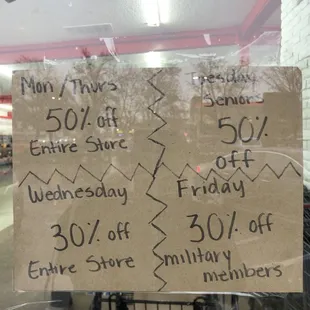 Mon/Thurs
50% off
Entire Store
Tuesday
Seniors
50%
off
Wednesday
30% off
Entire Store
Friday
30% off
military
members